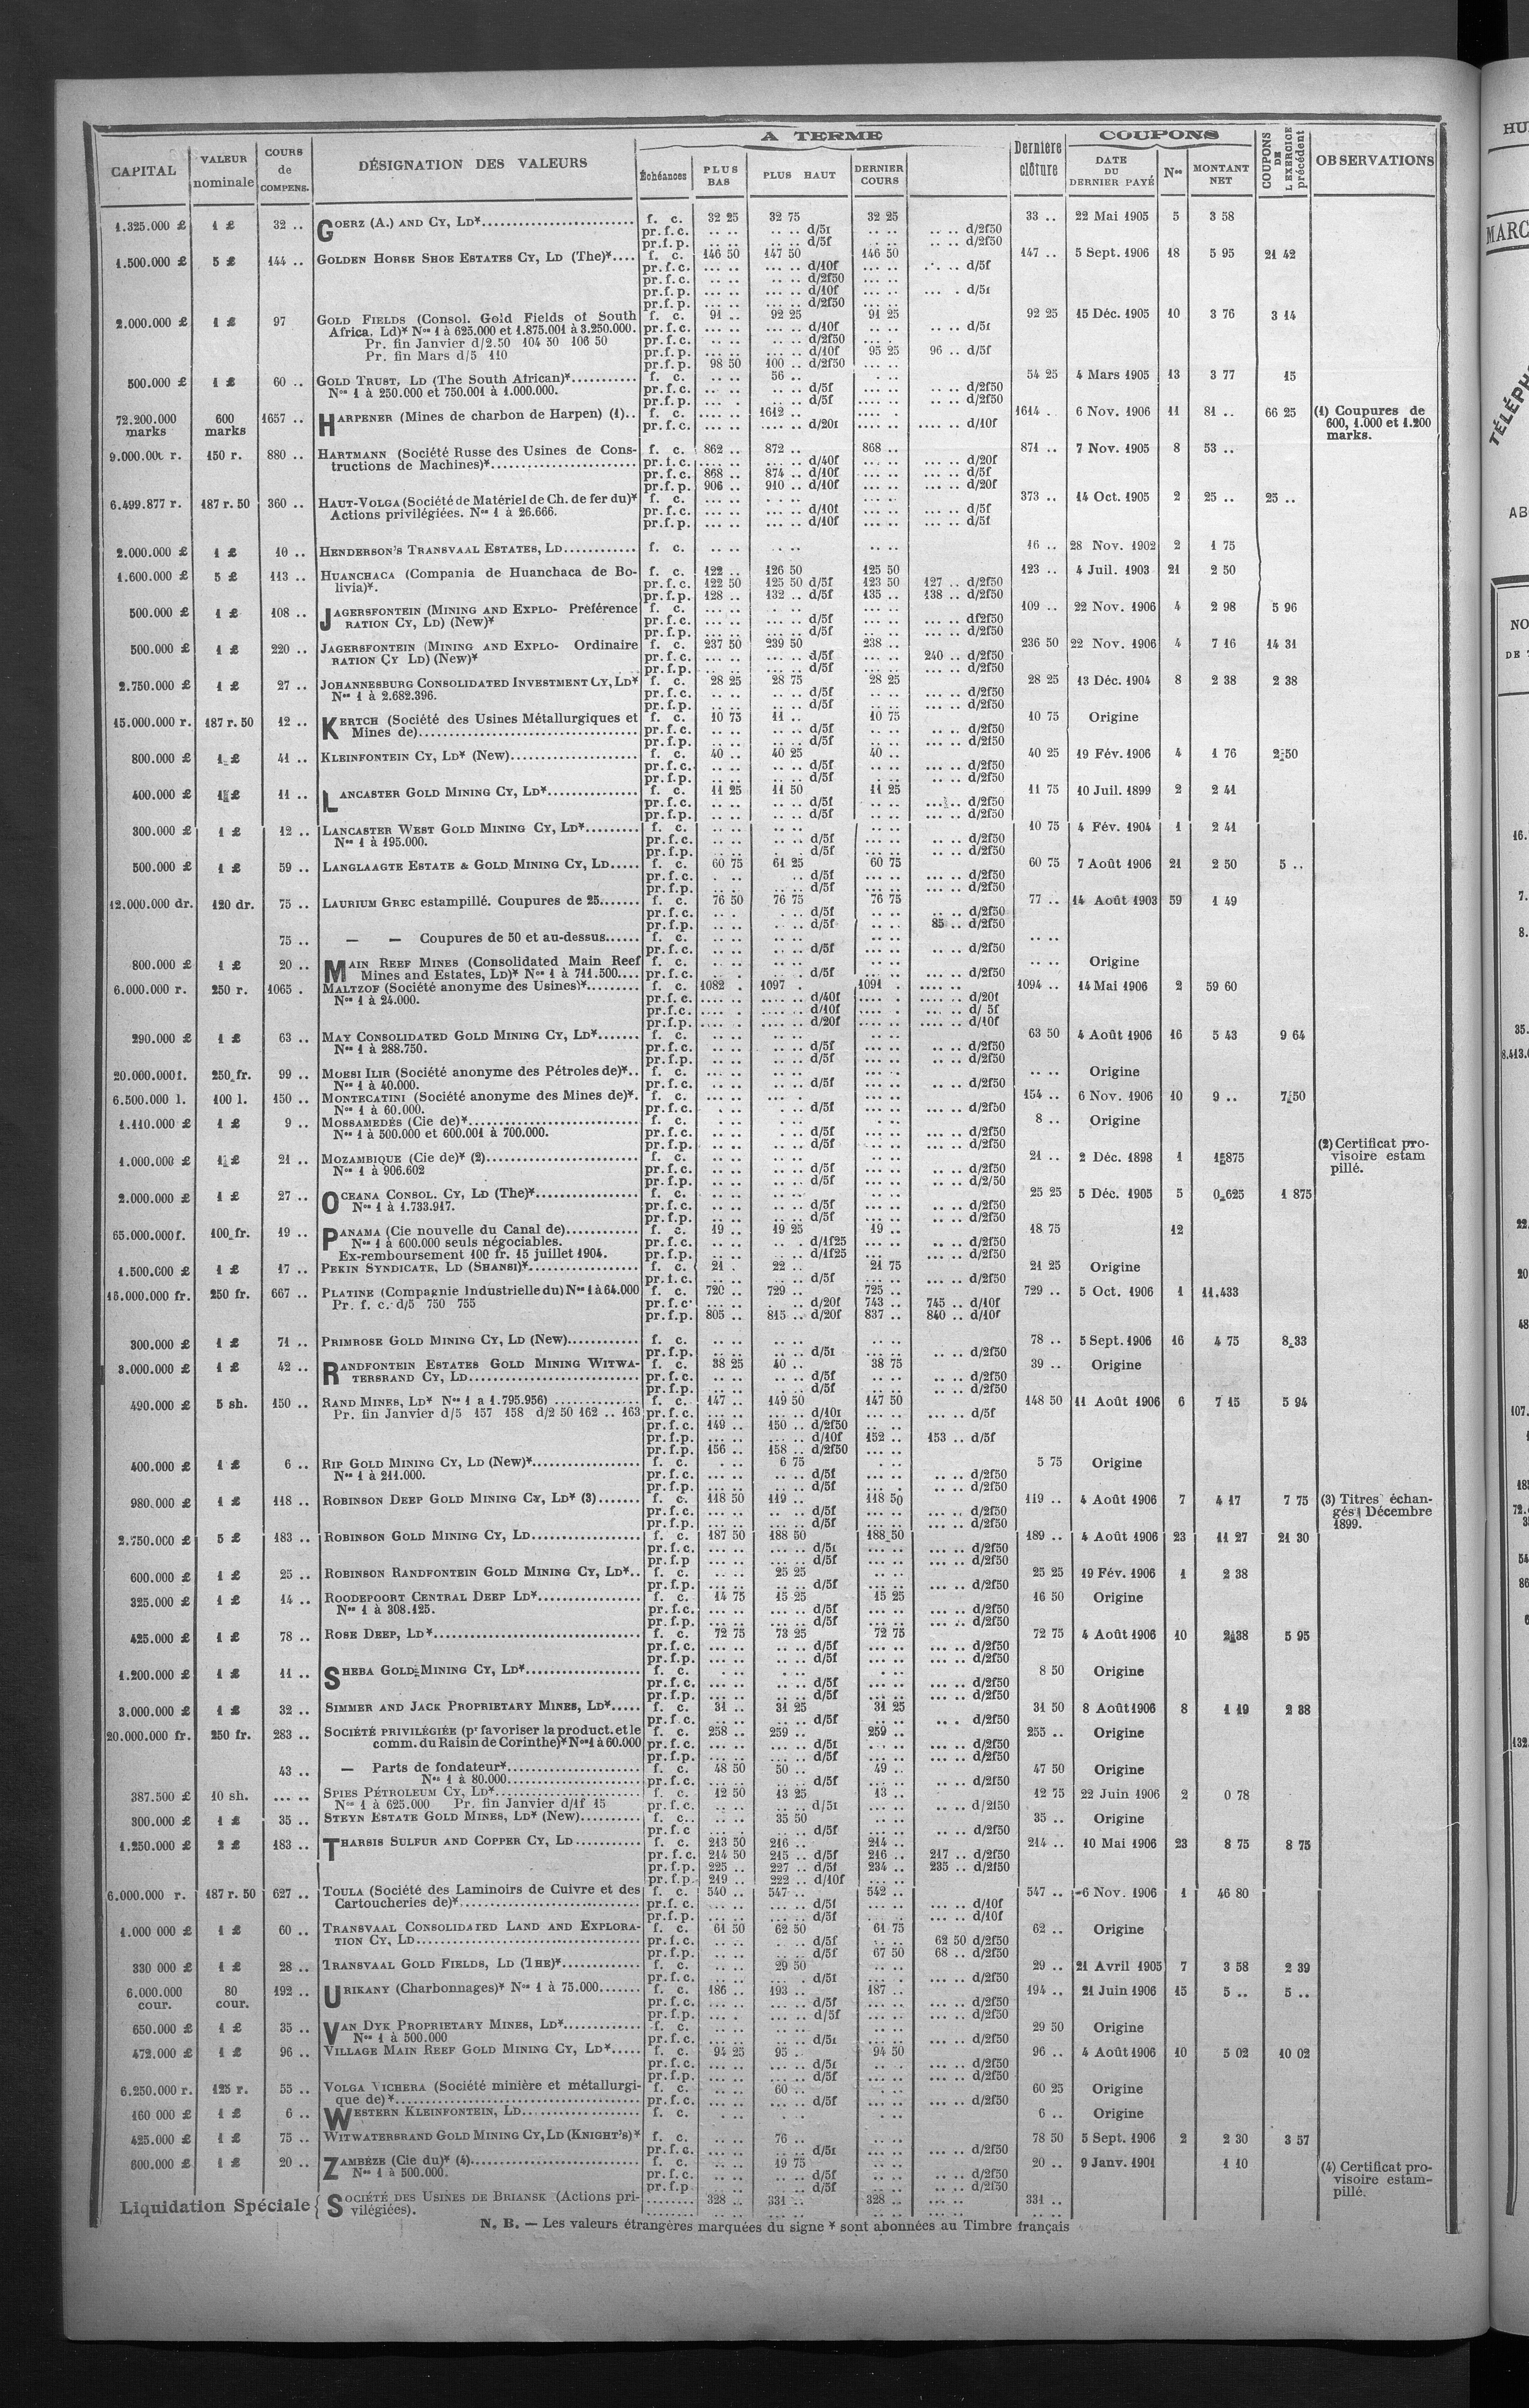 A TERME
COUPONS
CAPITAL | VALEUR nominale | COURS de COMPENS. | DÉSIGNATION DES VALEURS | Échéances | PLUS BAS | PLUS HAUT | DERNIER COURS | Dernière clôture | DATE DU DERNIER PAYÉ | Nos | MONTANT NET | COUPONS DE L'EXERCICE précédent | OBSERVATIONS
1.325.000 £ 1 £ 32 .. GOERZ (A.) AND CY, LD* f. c. 32 25 32 75 32 25 33 .. 22 Mai 1905 5 3 58
pr.f.c. .. .. .. .. d/5f .. .. .. .. d/2f50
pr.f.p. .. .. .. .. d/5f .. .. .. .. d/2f50
1.500.000 £ 5 £ 144 .. GOLDEN HORSE SHOE ESTATES CY, LD (The)* f. c. 146 50 147 50 146 50 147 .. 5 Sept. 1906 18 5 95 21 42
pr.f.c. ... .. ... .. d/10f ... .. .. .. d/5f
pr.f.c. ... .. ... .. d/2f50
pr.f.p. ... .. ... .. d/10f ... .. ... . d/5f
pr.f.p. ... .. ... .. d/2f50
2.000.000 £ 1 £ 97 GOLD FIELDS (Consol. Gold Fields of South f. c. 91 .. 92 25 91 25 92 25 15 Déc. 1905 10 3 76 3 14
Africa, Ld)* Nos 1 à 625.000 et 1.875.001 à 3.250.000. pr.f.c. ... .. ... .. d/10f .. .. .. .. d/5f
Pr. fin Janvier d/2.50 104 50 106 50 pr.f.c. ... .. ... .. d/2f50
Pr. fin Mars d/5 110 pr.f.p. ... .. ... .. d/10f 95 25 96 .. d/5f
pr.f.p. 98 50 100 .. d/2f50
500.000 £ 1 £ 60 .. GOLD TRUST, LD (The South African)* f. c. .. .. 56 .. 54 25 4 Mars 1905 13 3 77 15
Nos 1 à 250.000 et 750.001 à 1.000.000. pr.f.c. .. .. .. .. d/5f .. .. .. .. d/2f50
pr.f.p. .. .. .. .. d/5f .. .. .. .. d/2f50
72.200.000 marks 600 marks 1657 .. HARPENER (Mines de charbon de Harpen) (1).. f. c. .... .. 1612 .. 1614 . 6 Nov. 1906 11 81 .. 66 25 (1) Coupures de
pr.f.c. .... .. .... .. d/20f .... .. .... .. d/10f 600, 1.000 et 1.200
marks.
9.000.000 r. 150 r. 880 .. HARTMANN (Société Russe des Usines de Cons- f. c. 862 .. 872 .. 868 .. 871 .. 7 Nov. 1905 8 53 ..
tructions de Machines)* pr.f.c. ... .. ... .. d/40f ... .. ... .. d/20f
pr.f.c. 868 .. 874 .. d/10f ... .. ... .. d/5f
pr.f.p. 906 .. 910 .. d/10f ... .. ... .. d/20f
6.499.877 r. 187 r. 50 360 .. HAUT-VOLGA (Société de Matériel de Ch. de fer du)* f. c. 373 .. 14 Oct. 1905 2 25 .. 25 ..
Actions privilégiées. Nos 1 à 26.666. pr.f.c. ... .. ... .. d/10f ... .. ... .. d/5f
pr.f.p. ... .. ... .. d/10f ... .. ... .. d/5f
2.000.000 £ 1 £ 10 .. HENDERSON'S TRANSVAAL ESTATES, LD f. c. .. .. .. .. .. .. 16 .. 28 Nov. 1902 2 1 75
1.600.000 £ 5 £ 113 .. HUANCHACA (Compania de Huanchaca de Bo- f. c. 122 .. 126 50 125 50 123 .. 4 Juil. 1903 21 2 50
livia)*. pr.f.c. 122 50 125 50 d/5f 123 50 127 .. d/2f50
pr.f.p. 128 .. 132 .. d/5f 135 .. 138 .. d/2f50
500.000 £ 1 £ 108 .. JAGERSFONTEIN (MINING AND EXPLO- Préférence f. c. 109 .. 22 Nov. 1906 4 2 98 5 96
RATION CY, LD) (New)* pr.f.c. ... .. ... .. d/5f ... .. ... .. df2f50
pr.f.p. ... .. ... .. d/5f ... .. ... .. d/2f50
500.000 £ 1 £ 220 .. JAGERSFONTEIN (MINING AND EXPLO- Ordinaire f. c. 237 50 239 50 238 .. 236 50 22 Nov. 1906 4 7 16 14 31
RATION CY LD) (New)* pr.f.c. ... .. ... .. d/5f ... .. 240 .. d/2f50
pr.f.p. ... .. ... .. d/5f ... .. ... .. d/2f50
2.750.000 £ 1 £ 27 .. JOHANNESBURG CONSOLIDATED INVESTMENT CY, LD* f. c. 28 25 28 75 28 25 28 25 13 Déc. 1904 8 2 38 2 38
Nos 1 à 2.682.396. pr.f.c. .. .. .. .. d/5f .. .. ... .. d/2f50
pr.f.p. .. .. .. .. d/5f .. .. ... .. d/2f50
15.000.000 r. 187 r. 50 12 .. KERTCH (Société des Usines Métallurgiques et f. c. 10 75 11 .. 10 75 10 75 Origine
Mines de) pr.f.c. .. .. .. .. d/5f .. .. .. .. d/2f50
pr.f.p. .. .. .. .. d/5f .. .. ... .. d/2f50
800.000 £ 1 £ 41 .. KLEINFONTEIN CY, LD* (New) f. c. 40 .. 40 25 40 .. 40 25 19 Fév. 1906 4 1 76 2 50
pr.f.c. .. .. .. .. d/5f .. .. .. .. d/2f50
pr.f.p. .. .. .. .. d/5f .. .. .. .. d/2f50
400.000 £ 1 £ 11 .. LANCASTER GOLD MINING CY, LD* f. c. 11 25 11 50 11 25 11 75 10 Juil. 1899 2 2 41
pr.f.c. .. .. .. .. d/5f .. .. ... .. d/2f50
pr.f.p. .. .. .. .. d/5f .. .. ... .. d/2f50
300.000 £ 1 £ 12 .. LANCASTER WEST GOLD MINING CY, LD* f. c. .. .. .. .. .. .. 10 75 4 Fév. 1904 1 2 41
Nos 1 à 195.000. pr.f.c. .. .. .. .. d/5f .. .. .. .. d/2f50
pr.f.p. .. .. .. . d/5f .. .. .. .. d/2f50
500.000 £ 1 £ 59 .. LANGLAAGTE ESTATE & GOLD MINING CY, LD f. c. 60 75 61 25 60 75 60 75 7 Août 1906 21 2 50 5 ..
pr.f.c. . .. .. .. d/5f ... .. ... .. d/2f50
pr.f.p. .. .. .. .. d/5f ... .. ... .. d/2f50
12.000.000 dr. 120 dr. 75 .. LAURIUM GREC estampillé. Coupures de 25 f. c. 76 50 76 75 76 75 77 .. 14 Août 1903 59 1 49
pr.f.c. .. . . .. d/5f .. .. .. .. d/2f50
pr.f.p. .. .. .. .. d/5f .. .. 85 .. d/2f50
75 .. — — Coupures de 50 et au-dessus f. c. .. .. .. .. .. .. .. ..
pr.f.c. .. .. .. .. d/5f .. .. .. .. d/2f50
800.000 £ 1 £ 20 .. MAIN REEF MINES (Consolidated Main Reef f. c. .. .. .. .. .. .. .. .. Origine
Mines and Estates, LD)* Nos 1 à 711.500 pr.f.c. .. . . .. d/5f ... .. ... .. d/2f50
6.000.000 r. 250 r. 1065 . MALTZOF (Société anonyme des Usines)* f. c. 1082 . 1097 . 1091 . 1094 .. 14 Mai 1906 2 59 60
Nos 1 à 24.000. pr.f.c. .... .. .... .. d/40f .... .. .... .. d/20f
pr.f.c. .... . .... .. d/10f .... .. .... .. d/ 5f
pr.f.p. .... . .... .. d/20f .... .. .... .. d/10f
290.000 £ 1 £ 63 .. MAY CONSOLIDATED GOLD MINING CY, LD* f. c. .. .. .. .. .. .. 63 50 4 Août 1906 16 5 43 9 64
Nos 1 à 288.750. pr.f.c. .. .. .. .. d/5f .. .. ... .. d/2f50
pr.f.p. .. .. .. .. d/5f .. .. ... .. d/2f50
20.000.000 f. 250 fr. 99 .. MOESI ILIR (Société anonyme des Pétroles de)* f. c. .. .. .. .. .. .. .. .. Origine
Nos 1 à 40.000. pr.f.c. .. .. .. .. d/5f .. .. ... .. d/2f50
6.500.000 l. 100 l. 150 .. MONTECATINI (Société anonyme des Mines de)*. f. c. 154 .. 6 Nov. 1906 10 9 .. 7 50
Nos 1 à 60.000. pr.f.c. . .. . .. d/5f .. .. ... .. d/2f50
1.110.000 £ 1 £ 9 .. MOSSAMEDÈS (Cie de)* f. c. 8 .. Origine
Nos 1 à 500.000 et 600.001 à 700.000. pr.f.c. .. .. . .. d/5f ... .. ... .. d/2f50
pr.f.p. .. .. .. .. d/5f ... .. ... .. d/2f50 (2) Certificat pro-
1.000.000 £ 1 £ 21 .. MOZAMBIQUE (Cie de)* (2) f. c. 21 .. 2 Déc. 1898 1 1 875 visoire estam
Nos 1 à 906.602 pr.f.c. .. .. .. .. d/5f .. .. .. .. d/2f50 pillé.
pr.f.p. .. .. .. .. d/5f .. .. .. .. d/2/50
2.000.000 £ 1 £ 27 .. OCEANA CONSOL. CY, LD (The)* f. c. .. .. .. .. .. .. 25 25 5 Déc. 1905 5 0 625 1 875
Nos 1 à 1.733.917. pr.f.c. .. .. .. .. d/5f .. .. .. .. d/2f50
pr.f.p. .. .. .. .. d/5f .. .. .. .. d/2f50
65.000.000 f. 100 fr. 19 .. PANAMA (Cie nouvelle du Canal de) f. c. 19 .. 19 25 19 .. 18 75 12
Nos 1 à 600.000 seuls négociables. pr.f.c. .. .. .. . d/1f25 ... .. ... .. d/2f50
Ex-remboursement 100 fr. 15 juillet 1904. pr.f.p. .. .. .. .. d/1f25 ... ... .. d/2f50
1.500.000 £ 1 £ 17 .. PEKIN SYNDICATE, LD (SHANSI)* f. c. 21 . 22 .. 21 75 21 25 Origine
pr.f.c. .. .. .. .. d/5f ... .. ... .. d/2f50
15.000.000 fr. 250 fr. 667 .. PLATINE (Compagnie Industrielle du) Nos 1 à 64.000 f. c. 720 .. 729 .. 725 .. 729 .. 5 Oct. 1906 1 11.433
Pr. f. c. d/5 750 755 pr.f.c. ... .. . .. d/20f 743 .. 745 .. d/10f
pr.f.p. 805 .. 815 .. d/20f 837 .. 840 .. d/10f
300.000 £ 1 £ 71 .. PRIMROSE GOLD MINING CY, LD (New) f. c. .. .. .. .. .. .. 78 .. 5 Sept. 1906 16 4 75 8 33
pr.f.p. .. .. .. .. d/5f .. .. .. .. d/2f50
3.000.000 £ 1 £ 42 .. RANDFONTEIN ESTATES GOLD MINING WITWA- f. c. 38 25 40 .. 38 75 39 .. Origine
TERSRAND CY, LD pr.f.c. .. .. .. .. d/5f .. .. ... .. d/2f50
pr.f.p. .. .. . .. d/5f .. .. ... .. d/2f50
490.000 £ 5 sh. 150 .. RAND MINES, LD* Nos 1 a 1.795.956) f. c. 147 .. 149 50 147 50 148 50 11 Août 1906 6 7 15 5 94
Pr. fin Janvier d/5 157 158 d/2 50 162 .. 163 pr.f.c. ... .. ... .. d/10f ... .. ... .. d/5f
pr.f.c. 149 .. 150 .. d/2f50
pr.f.p. ... .. ... .. d/10f 152 .. 153 .. d/5f
pr.f.p. 156 .. 158 .. d/2f50 ... ..
400.000 £ 1 £ 6 .. RIP GOLD MINING CY, LD (New)* f. c. . .. 6 75 . .. 5 75 Origine
Nos 1 à 211.000. pr.f.c. ... .. .. .. d/5f ... .. .. .. d/2f50
pr.f.p. ... .. .. .. d/5f ... .. .. .. d/2f50
980.000 £ 1 £ 118 .. ROBINSON DEEP GOLD MINING CY, LD* (3) f. c. 118 50 119 .. 118 50 119 .. 4 Août 1906 7 4 17 7 75 (3) Titres échan-
pr.f.c. ... .. .. .. d/5f ... .. ... .. d/2f50 gés Décembre
pr.f.p. ... .. ... .. d/5f ... .. ... .. d/2f50 1899.
2.750.000 £ 5 £ 183 .. ROBINSON GOLD MINING CY, LD f. c. 187 50 188 50 188 50 189 .. 4 Août 1906 23 11 27 21 30
pr.f.c. ... .. ... .. d/5f ... .. ... .. d/2f50
pr.f.p ... .. ... .. d/5f ... .. ... .. d/2f50
600.000 £ 1 £ 25 .. ROBINSON RANDFONTEIN GOLD MINING CY, LD* f. c. .. .. 25 25 .. .. 25 25 19 Fév. 1906 1 2 38
pr.f.p. ... .. .. .. d/5f ... .. ... .. d/2f50
325.000 £ 1 £ 14 .. ROODEPOORT CENTRAL DEEP LD* f. c. 14 75 15 25 15 25 16 50 Origine
Nos 1 à 308.125. pr.f.c. ... .. ... .. d/5f ... .. ... .. d/2f50
pr.f.p. ... .. ... .. d/5f ... .. ... .. d/2f50
425.000 £ 1 £ 78 .. ROSE DEEP, LD* f. c. 72 75 73 25 72 75 72 75 4 Août 1906 10 2 38 5 95
pr.f.c. ... .. .. .. d/5f ... .. ... .. d/2f50
pr.f.p. ... .. .. .. d/5f ... .. ... .. d/2f50
1.200.000 £ 1 £ 11 .. SHEBA GOLD MINING CY, LD* f. c. . .. . .. . .. 8 50 Origine
pr.f.c. ... .. .. .. d/5f ... .. ... .. d/2f50
pr.f.p. ... .. .. .. d/5f ... .. ... .. d/2f50
3.000.000 £ 1 £ 32 .. SIMMER AND JACK PROPRIETARY MINES, LD* f. c. 31 .. 31 25 31 25 31 50 8 Août 1906 8 1 19 2 38
pr.f.c. .. .. .. .. d/5f .. .. .. . d/2f50
20.000.000 fr. 250 fr. 283 .. SOCIÉTÉ PRIVILÉGIÉE (pr favoriser la product. et le f. c. 258 .. 259 .. 259 .. 255 .. Origine
comm. du Raisin de Corinthe)* Nos 1 à 60.000 pr.f.c. ... .. ... .. d/5f . .. ... .. d/2f50
pr.f.p. ... .. ... .. d/5f ... .. ... .. d/2f50
43 .. — Parts de fondateur* f. c. 48 50 50 .. 49 .. 47 50 Origine
Nos 1 à 80.000 pr.f.c. ... .. .. .. d/5f ... .. .. .. d/2f50
387.500 £ 10 sh. ... .. SPIES PÉTROLEUM CY, LD* f. c. 12 50 13 25 13 .. 12 75 22 Juin 1906 2 0 78
Nos 1 à 625.000 Pr. fin Janvier d/1f 15 pr.f.c. .. .. .. .. d/5f .. .. .. .. d/2f50
300.000 £ 1 £ 35 .. STEYN ESTATE GOLD MINES, LD* (New) f. c. .. .. 35 50 .. .. 35 .. Origine
pr.f.c .. . .. .. d/5f .. .. .. .. d/2f50
1.250.000 £ 2 £ 183 .. THARSIS SULFUR AND COPPER CY, LD f. c. 213 50 216 .. 214 .. 214 .. 10 Mai 1906 23 8 75 8 75
pr.f.c. 214 50 215 .. d/5f 216 .. 217 .. d/2f50
pr.f.p. 225 .. 227 .. d/5f 234 .. 235 .. d/2f50
pr.f.p. 219 .. 222 .. d/10f ... ..
6.000.000 r. 187 r. 50 627 .. TOULA (Société des Laminoirs de Cuivre et des f. c. 540 .. 547 .. 542 .. 547 .. 6 Nov. 1906 1 46 80
Cartoucheries de)* pr.f.c. ... .. ... .. d/5f ... .. ... .. d/10f
pr.f.p. ... .. ... .. d/5f ... .. ... .. d/10f
1.000 000 £ 1 £ 60 .. TRANSVAAL CONSOLIDATED LAND AND EXPLORA- f. c. 61 50 62 50 61 75 62 .. Origine
TION CY, LD pr.f.c. .. .. . .. d/5f .. .. 62 50 d/2f50
pr.f.p. .. .. .. .. d/5f 67 50 68 .. d/2f50
330 000 £ 1 £ 28 .. TRANSVAAL GOLD FIELDS, LD (THE)* f. c. .. .. 29 50 .. .. 29 .. 21 Avril 1905 7 3 58 2 39
pr.f.c. ... .. ... . d/5f ... . ... .. d/2f50
6.000.000 cour. 80 cour. 192 .. URIKANY (Charbonnages)* Nos 1 à 75.000 f. c. 186 .. 193 .. 187 .. 194 .. 21 Juin 1906 15 5 .. 5 ..
pr.f.c. ... .. ... .. d/5f ... .. ... .. d/2f50
pr.f.p. ... . ... .. d/5f ... .. ... .. d/2f50
650.000 £ 1 £ 35 .. VAN DYK PROPRIETARY MINES, LD* f. c. .. .. .. .. .. .. 29 50 Origine
Nos 1 à 500.000 pr.f.c. .. .. .. .. d/5f ... .. ... .. d/2f50
472.000 £ 1 £ 96 .. VILLAGE MAIN REEF GOLD MINING CY, LD* f. c. 94 25 95 . 94 50 96 .. 4 Août 1906 10 5 02 10 02
pr.f.c. ... .. ... .. d/5f ... .. ... .. d/2f50
pr.f.p. ... .. ... .. d/5f ... .. ... .. d/2f50
6.250.000 r. 125 r. 55 .. VOLGA VICHERA (Société minière et métallurgi- f. c. . .. 60 .. . .. 60 25 Origine
que de)* pr.f.c. ... .. ... .. d/5f ... .. ... .. d/2f50
160 000 £ 1 £ 6 .. WESTERN KLEINFONTEIN, LD f. c. . .. . .. . .. 6 .. Origine
425.000 £ 1 £ 75 .. WITWATERSRAND GOLD MINING CY, LD (KNIGHT'S)* f. c. .. .. 76 .. .. .. 78 50 5 Sept. 1906 2 2 30 3 57
pr.f.c. ... .. ... .. d/5f ... .. ... .. d/2f50
600.000 £ 1 £ 20 .. ZAMBÈZE (Cie du)* (4) f. c. . .. 19 75 . .. 20 .. 9 Janv. 1901 1 10 (4) Certificat pro-
Nos 1 à 500.000. pr.f.c. ... .. .. .. d/5f ... .. ... .. d/2f50 visoire estam-
pr.f.p ... .. .. .. d/5f ... .. ... .. d/2f50 pillé.
Liquidation Spéciale { SOCIÉTÉ DES USINES DE BRIANSK (Actions pri- 328 .. 331 .. 328 .. ... .. 331 ..
vilégiées).
N. B. — Les valeurs étrangères marquées du signe * sont abonnées au Timbre français
HU
MARC
TÉLÉPH
AB
NO
DE